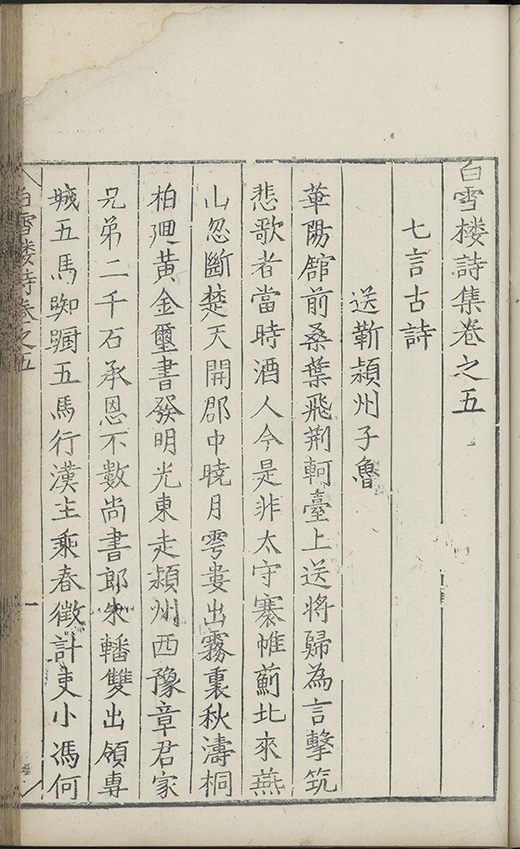 白雪楼詩集卷之五
七言古詩
送靳潁州子魯
華陽舘前桑葉飛荆軻臺上送將歸為言擊筑
悲歌者當時酒人今是非太守褰帷薊北來燕
山忽斷楚天開郡中曉月雩婁出霧裏秋濤桐
柏廻黃金璽書發明光東走潁州西豫章君家
兄弟二千石承恩不數尚書郎朱轓雙出領專
城五馬踟躕五馬行漢主乘春徵計吏小馮何
白雪楼詩卷之五
一